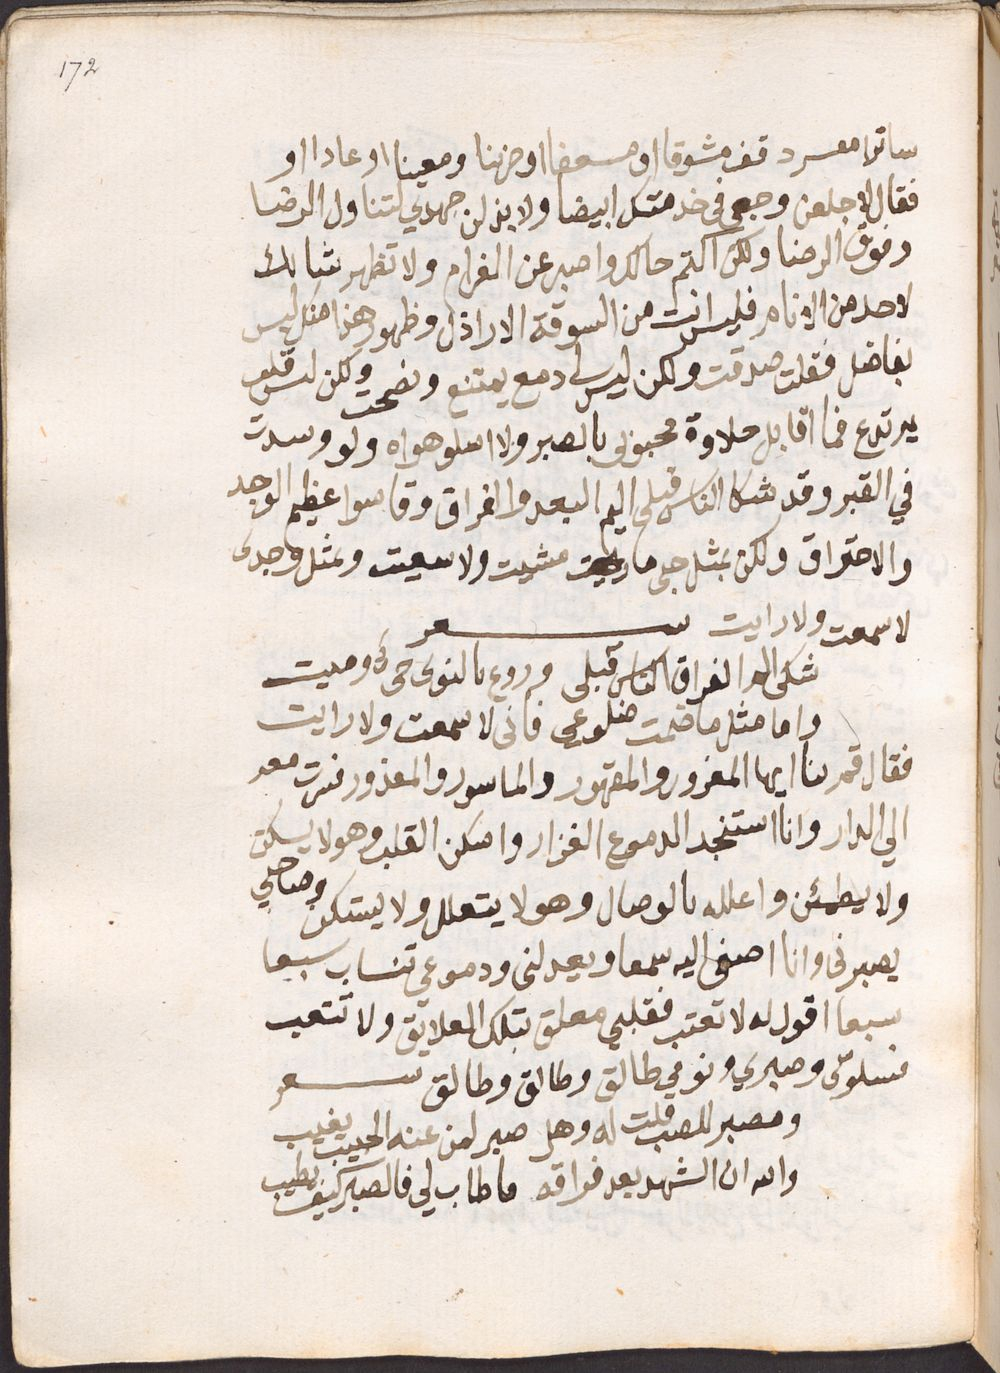 172
ساترا معسرد قف مشوقا او مسعفا او حزينا ومعينا او عادا او
فقال لاجلعن وجهي في خدمتك ابيضا ولابذلن جهدي لتناول الرضا
وفوق الرضا ولكن اكتم حالك واصبر عن الغرام ولا تظهر شانك
لاحد من الانام فليس انت من السوقة الاراذل وظهور هذا منك ليس
بفاضل فقلت صدقت ولكن ليس لي دمع يمتنع ونصحت ولكن ليس قلب
يرتدع فما اقابل حلاوة محبوبي بالصبر ولا اسلو هواه ولو وسدت
في القبر وقد شكا الناس قبلي اليم البعد والفراق وقاسوا عظيم الوجد
والاحتراق ولكن بمثل حبي ما مشيت ولا سعيت وبمثل وجدي
لا سمعت ولا رايت شعر
شكى الم الفراق الناس قبلي وروع بالنوى حي وميت
واما مثل ما ضمت ضلوعي فاني لا سمعت ولا رايت
فقال قم بنا ايها المغرور والمقهور والماسور والمعذور فسرت معه
الي الدار وانا استنجد الدموع الغزار واسكن القلب وهو لا يسكن
ولا يطمئن واعلله بالوصال وهو لا يتعلل ولا يستكن وصاحبي
يصبرني وانا اصغى اليه سمعا ويعدلني ودموعي تنساب سبعا
سبعا اقول له لا تعتب فقلبي معلق بتلك العلايق ولا تتعب
فسلوتي وصبري ونومي طالق وطالق وطالق شعر
ومصبر للصب قلت له وهل صبر لمن عنه الحبيب يغيب
والله ان الشهد بعد فراقه ما طاب لي فالصبر كيف يطيب